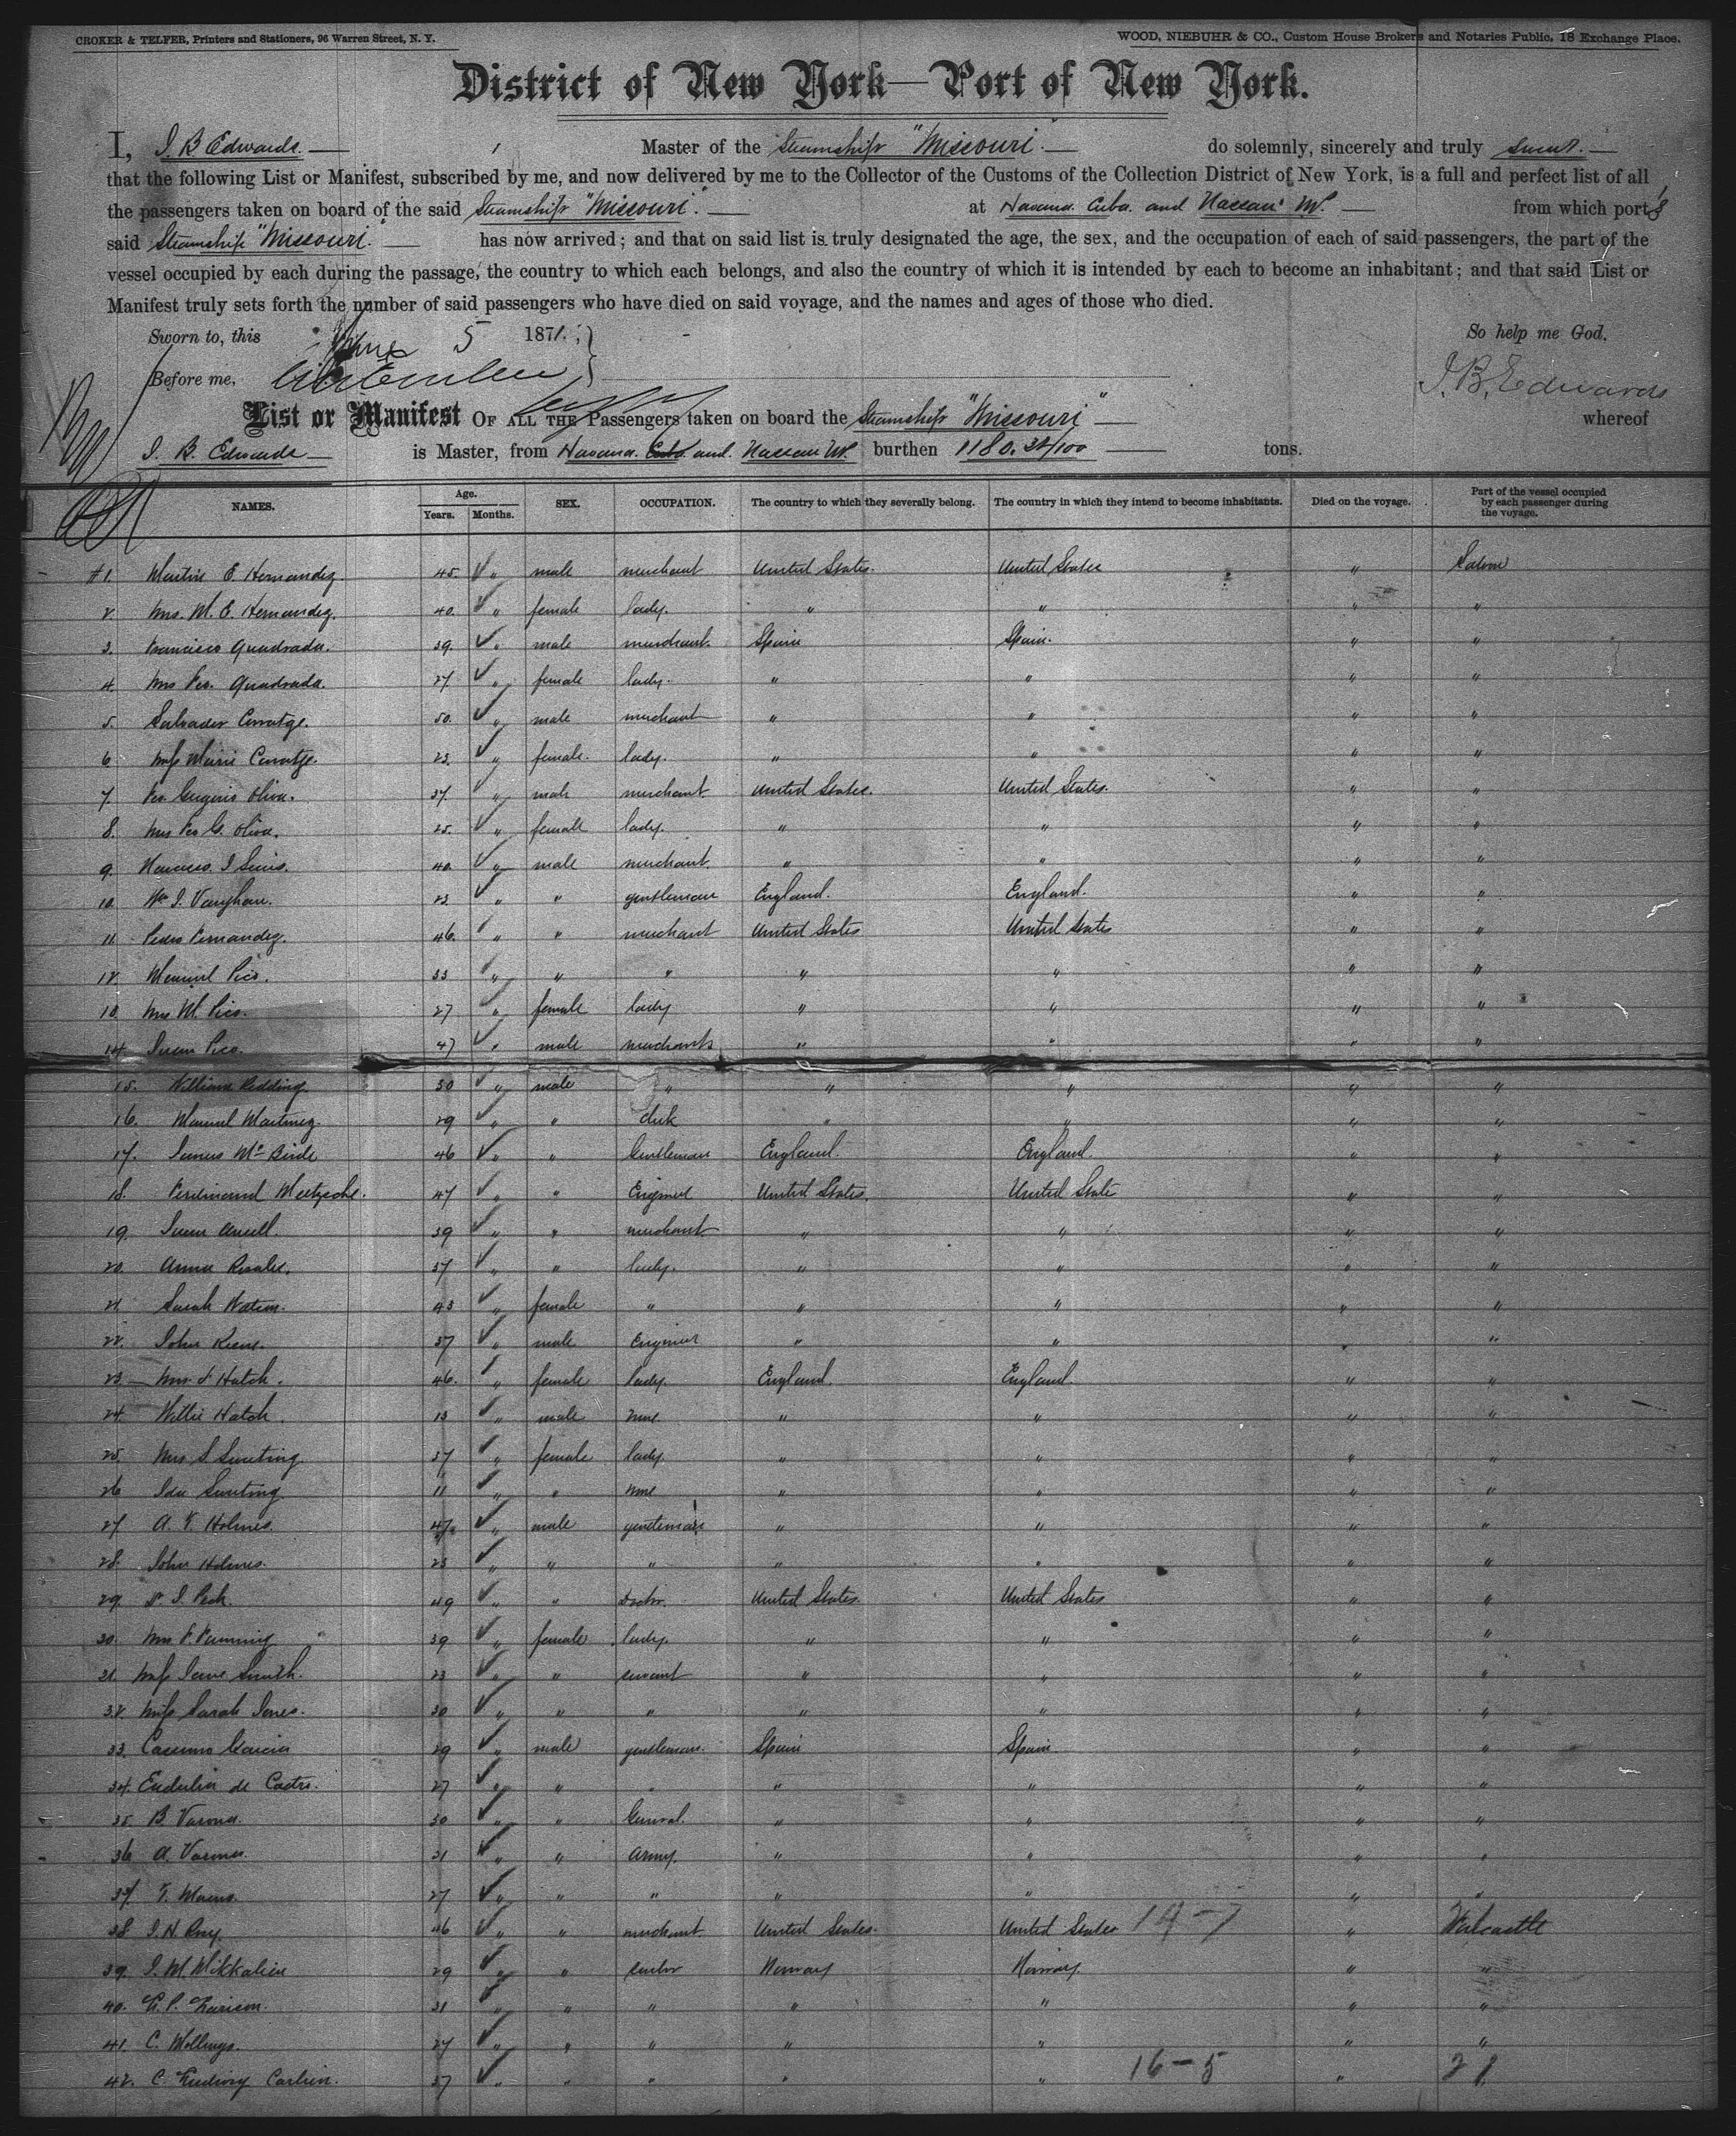 CROKER & TELFER, Printers and Stationers, 96 Warren Street, N. Y.
WOOD, NIEBUHR & CO., Custom House Brokers and Notaries Public, 18 Exchange Place.
District of New York—Port of New York.
I, J. B. Edwards. Master of the Steamship "Missouri". do solemnly, sincerely and truly swear.
that the following List or Manifest, subscribed by me, and now delivered by me to the Collector of the Customs of the Collection District of New York, is a full and perfect list of all
the passengers taken on board of the said Steamship "Missouri". at Havana. Cuba. and Nassau NP. from which ports
said Steamship "Missouri". has now arrived; and that on said list is truly designated the age, the sex, and the occupation of each of said passengers, the part of the
vessel occupied by each during the passage, the country to which each belongs, and also the country of which it is intended by each to become an inhabitant; and that said List or
Manifest truly sets forth the number of said passengers who have died on said voyage, and the names and ages of those who died.
Sworn to, this June 5 1871. So help me God.
Before me, J. B. Edwards
List or Manifest OF ALL THE Passengers taken on board the Steamship "Missouri" whereof
J. B. Edwards is Master, from Havana. Cuba. and. Nassau NP. burthen 1180. 32/100 tons.
NAMES. Age. Years. Months. SEX. OCCUPATION. The country to which they severally belong. The country in which they intend to become inhabitants. Died on the voyage. Part of the vessel occupied by each passenger during the voyage.
#1. Martin E. Hernandez. 45. " male merchant United States. United States " Saloon
2. Mrs. M. E. Hernandez. 40. " female lady. " " " "
3. Francisco Quadrada. 39. " male merchant. Spain Spain. " "
4. Mrs Fco. Quadrada. 27 " female lady. " " " "
5. Salvador 50. " male merchant " " " "
6. Miss Marie 23. " female. lady. " " " "
7. Fco Oliva. 37. " male merchant. United States. United States. " "
8. Mrs Fco G. Oliva. 25. " female lady. " " " "
9. 40. " male merchant. " " " "
10. Wm J. Vaughan. 23. " " gentleman England. England. " "
11. Pedro Fernandez. 46. " " merchant United States United States " "
12. Manuel Pico. 33 " " " " " " "
13. Mrs M. Pico. 27 " female lady " " " "
14. Juan Pico. 47 " male merchants " " " "
15. William Redding. 30 " male " " " " "
16. Manuel Martinez. 29 " " clerk " " " "
17. James Mc Birde 46 " " Gentleman England. England. " "
18. Ferdinand 47 " " Engineer United States. United State " "
19. Juan 39 " " merchant. " " " "
20. Anna Rosales. 37 " " lady. " " " "
21. Sarah Watson. 43 " female " " " " "
22. John 37 " male Engineer " " " "
23. Mrs J Hatch. 46. " female lady. England. England. " "
24. Willie Hatch. 13 " male none " " " "
25. Mrs S Sweeting. 37 " female lady. " " " "
26 Ida Sweeting 11 " " none " " " "
27. A. F. Holmes. 47. " male gentleman " " " "
28. John Holmes. 23 " " " " " " "
29. J. Peck. 49 " " Doctor. United States. United States " "
30. Mrs F. Fanning 39 " female lady. " " " "
31. Miss Jane Smith. 23 " " servant " " " "
32. Miss Sarah Jones. 30 " " " " " " "
33. Garcia 29 " male gentleman. Spain Spain. " "
34. de Castro. 27 " " " " " " "
35. B. Varona. 30 " " General. " " " "
36 A. Varona. 31 " " Army. " " " "
37. 27 " " " " " " "
38 J. N. 46 " " merchant. United States. United States 14-7 " Newcastle
39. J. M. Mikkalien 29 " " sailor Norway Norway. " "
40. 31 " " " " " " "
41. C. 27 " " " " " " "
42. C. Ludwig 37 " " " " " 16-5 " 21